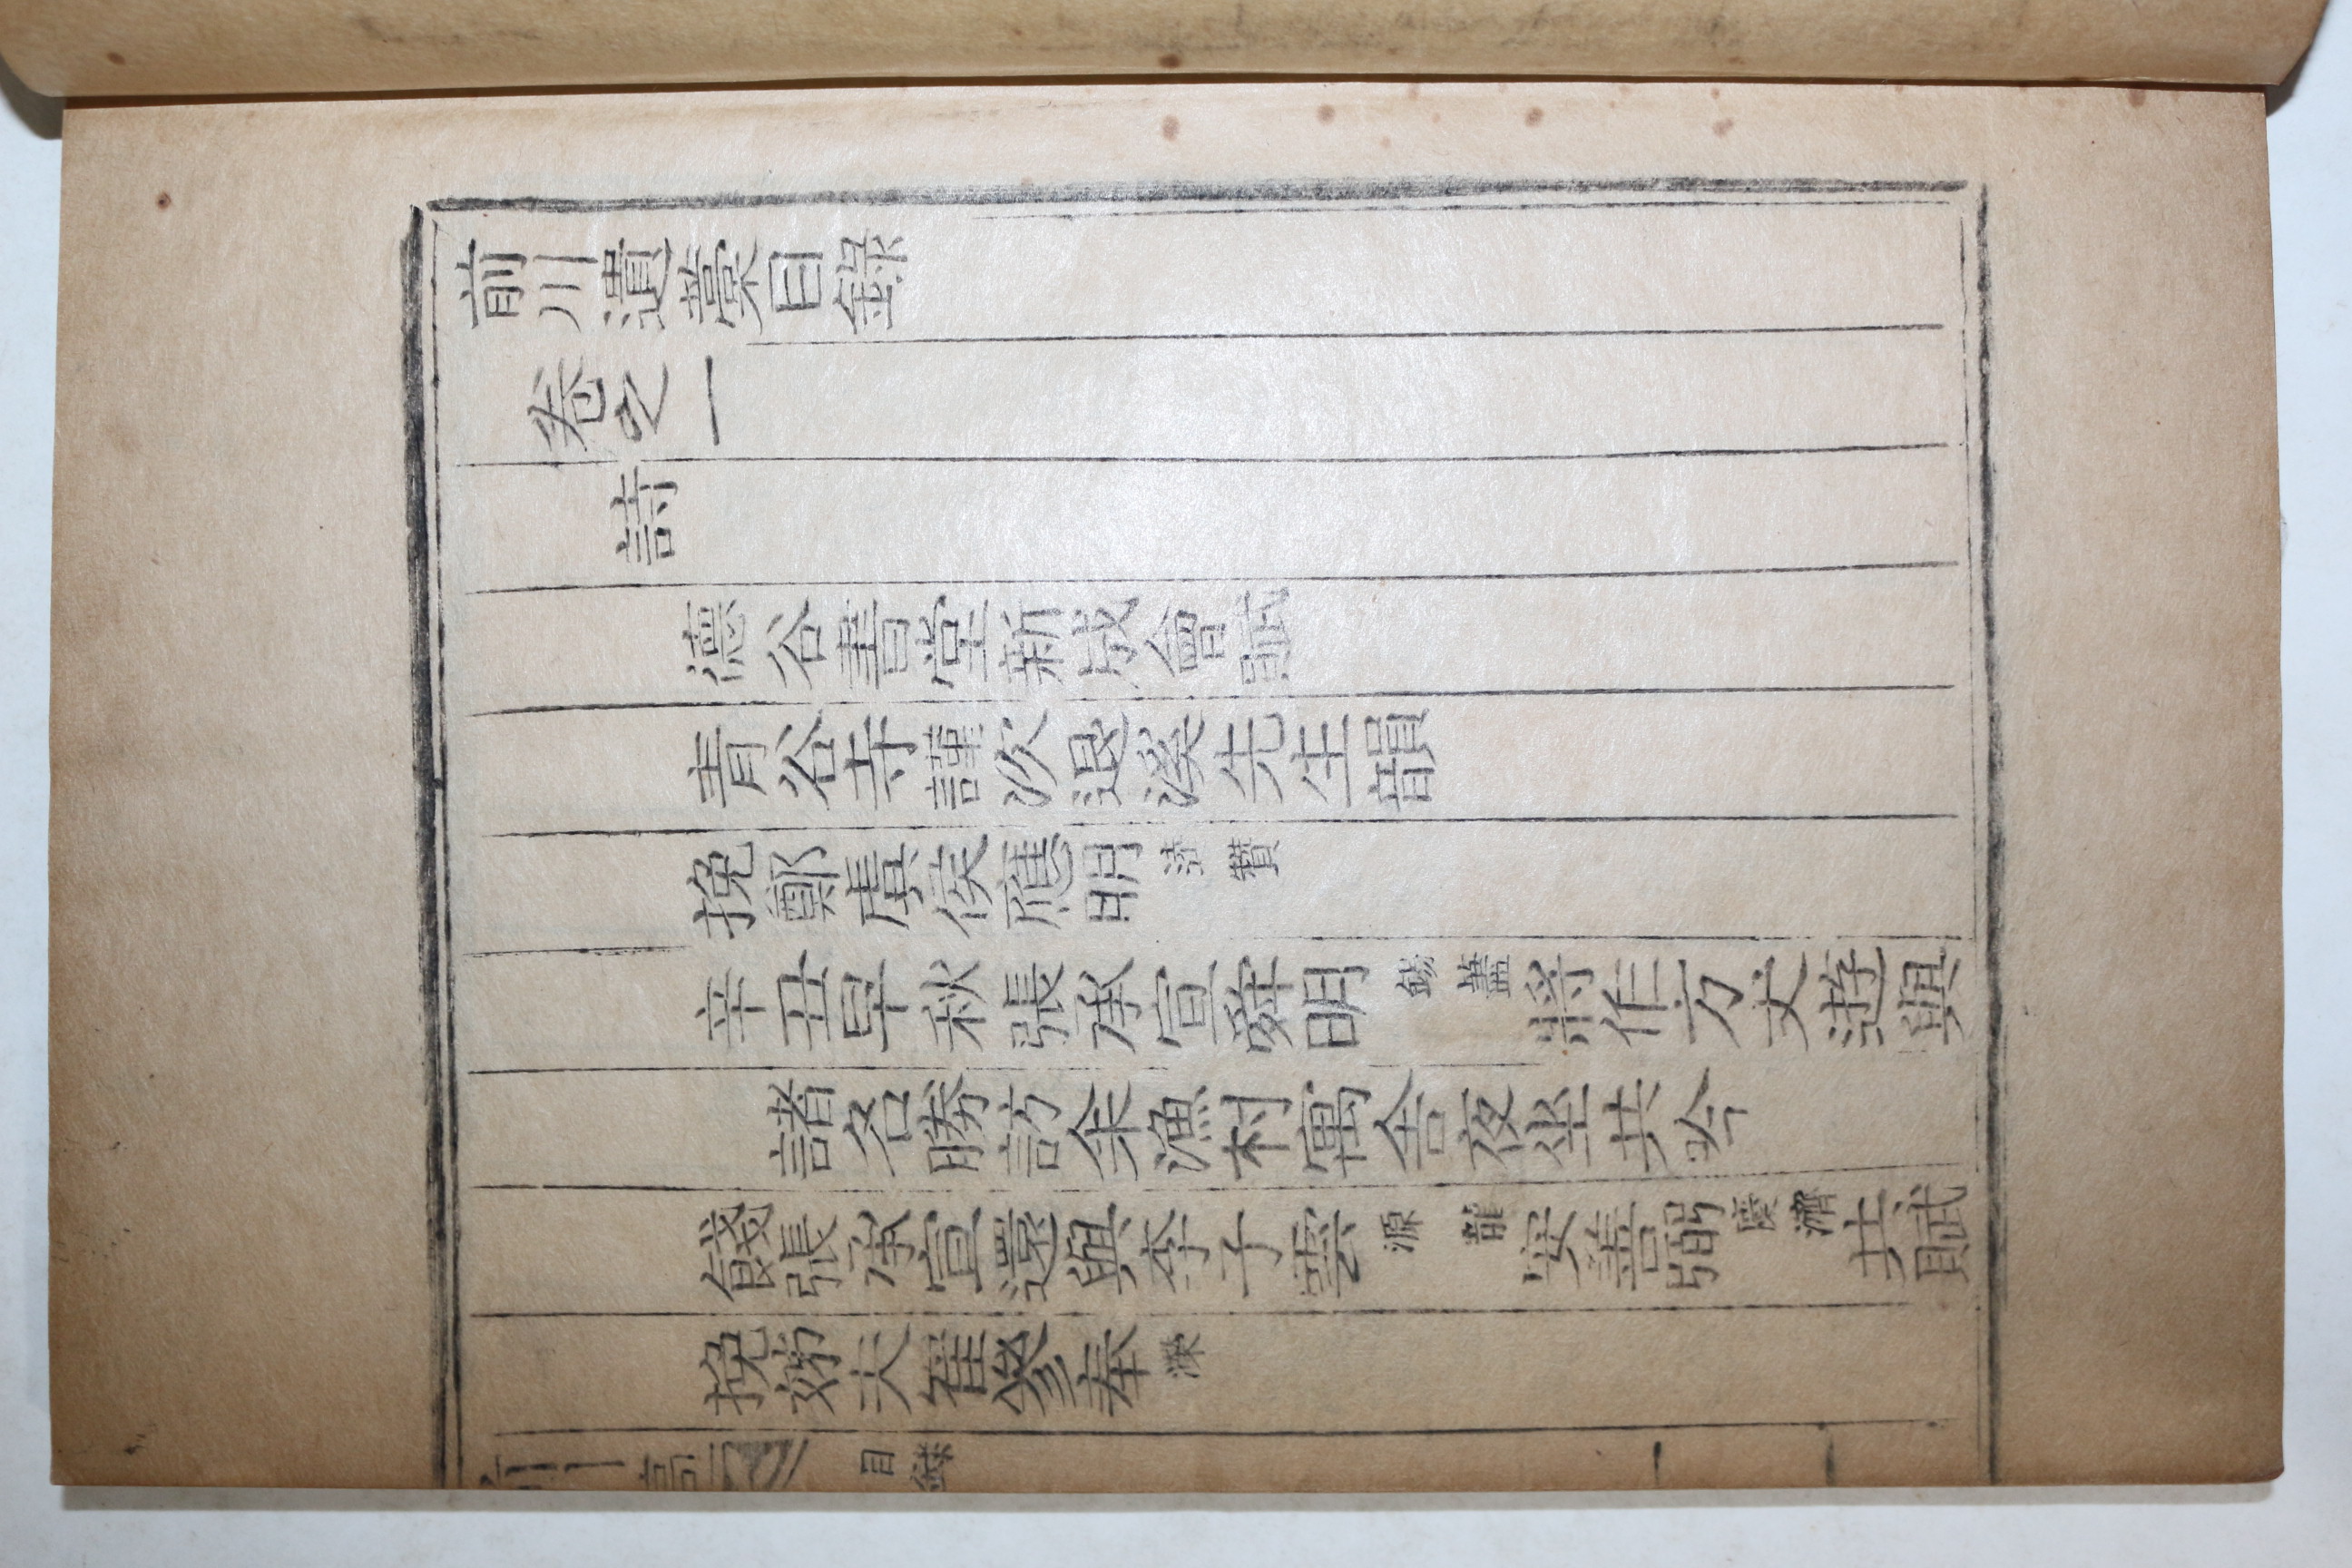 前川遺藁目錄
卷之一
詩
德谷書堂新成會賦
青谷寺謹次退溪先生韻
挽鄭虞侯應明逵贊
辛丑早秋張承宣舜明錫藎將作方丈遊與
諸名勝訪余漁村寓舍夜坐共吟
餞張承宣還與李子雲源龍安善弼慶濟共賦
挽姊夫崔參奉濚
目錄 一